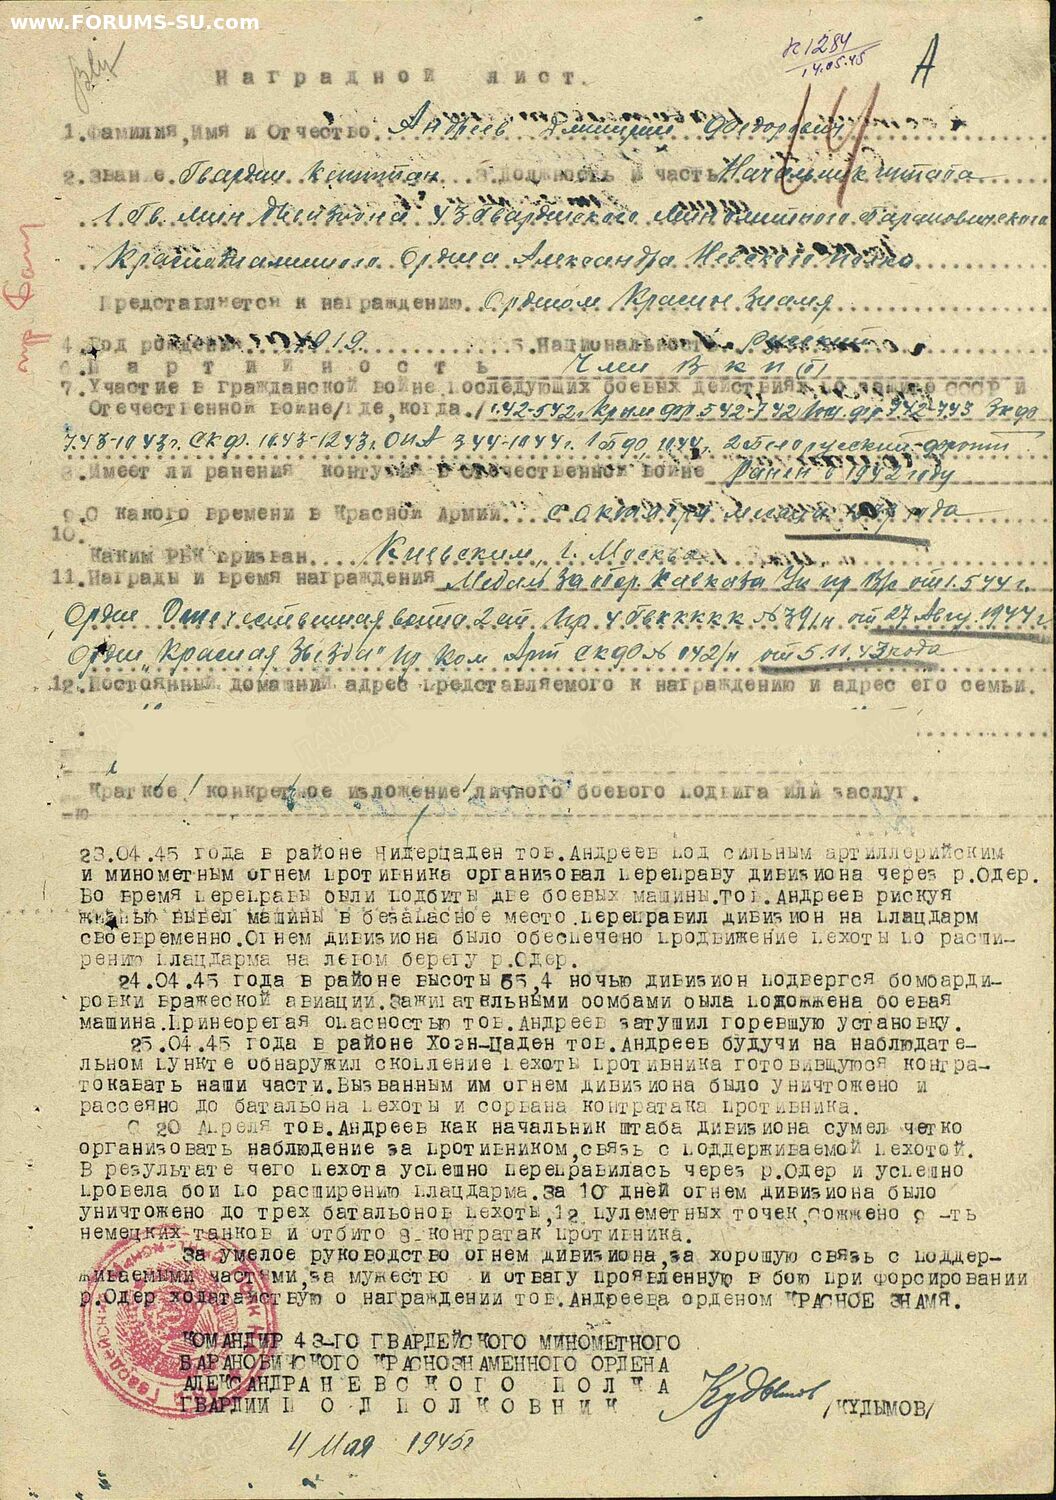 www.FORUMS-SU.com
№1284
14.05.45
А
Наградной лист.
1.Фамилия,Имя и Отчество Андреев Дмитрий Федорович
2.Звание.Гвардии Капитан 3.Должность и часть Начальник штаба
1 Гв. мин Дивизиона 43 Гвардейского Минометного Барановичского
Краснознаменного Ордена Александра Невского полка
Представляется к награждению. Орденом Красное Знамя
4.Год рождения 1919. 5.Национальность русский
6.Партийность Член ВКП(б)
7.Участие в гражданской войне последующих боевых действиях по защите СССР и
Отечественной войне/где,когда./1.42-5.42г. Крым фр. 5.42-7.42 Юж. фр 7.42-7.43 Зкфр
7.43-10.43г. СКФ. 10.43-12.43г. ОПА 3.44-10.44г. 1 Бфр, 10.44г. 2 Белорусский фронт
8.Имеет ли ранения контузии в Отечественной войне Ранен в 1942 году
9.С какого времени в Красной Армии. с октября месяца года
10.
Каким РВК призван. Киевским, г. Москва
11.Награды и время награждения Медаль За обор. Кавказа Ук пр Вр от 1.5.44 г.
Орден Отечественная война 2 ст Пр. 4 Гвкккк №39/н от 27 Авгу. 1944 г
Орден „Красная Звезда" Пр Ком Арт СКФ № 042/н от 5.11.43 года
12.Постоянный домашний адрес представляемого к награждению и адрес его семьи.
Краткое, конкретное изложение личного боевого подвига или заслуг.
23.04.45 года в районе Нидерцаден тов.Андреев под сильным артиллерийским
и минометным огнем противника организовал переправу дивизиона через р.Одер.
Во время переправы были подбиты две боевых машины.Тов.Андреев рискуя
жизнью вывел машины в безапасное место.переправил дивизион на плацдарм
своевременно.Огнем дивизиона было обеспечено продвижение пехоты по расши-
рению плацдарма на левом берегу р.Одер.
24.04.45 года в районе высоты 55,4 ночью дивизион подвергся бомбарди-
ровки вражеской авиации.Зажигательными бомбами была подожжена боевая
машина.Принебрегая опасностью тов.Андреев затушил горевшую установку.
25.04.45 года в районе Хоэн-Цаден тов.Андреев будучи на наблюдате-
льном пункте обнаружил скопление пехоты противника готовившуюся контра-
токавать наши части.Вызванным им огнем дивизиона было уничтожено и
рассеяно до батальона пехоты и сорвана контратака противника.
С 20 Апреля тов.Андреев как начальник штаба дивизиона сумел четко
организовать наблюдение за противником,связь с поддерживаемой пехотой.
В результате чего пехота успешно переправилась через р.Одер и успешно
провела бои по расширению плацдарма.За 10 дней огнем дивизиона было
уничтожено до трех батальонов пехоты,12 пулеметных точек,сожжено 9 -ть
немецких танков и отбито 8 контратак противника.
За умелое руководство огнем дивизиона,за хорошую связь с поддер-
живаемыми частями,за мужество и отвагу проявленную в бою при форсировании
р.Одер ходатайствую о награждении тов.Андреева орденом КРАСНОЕ ЗНАМЯ.
КОМАНДИР 43-ГО ГВАРДЕЙСКОГО МИНОМЕТНОГО
БАРАНОВИЧСКОГО КРАСНОЗНАМЕННОГО ОРДЕНА
АЛЕКСАНДРА НЕВСКОГО ПОЛКА
ГВАРДИИ ПОДПОЛКОВНИК Кудымов /КУДЫМОВ/
4 Мая 1945г